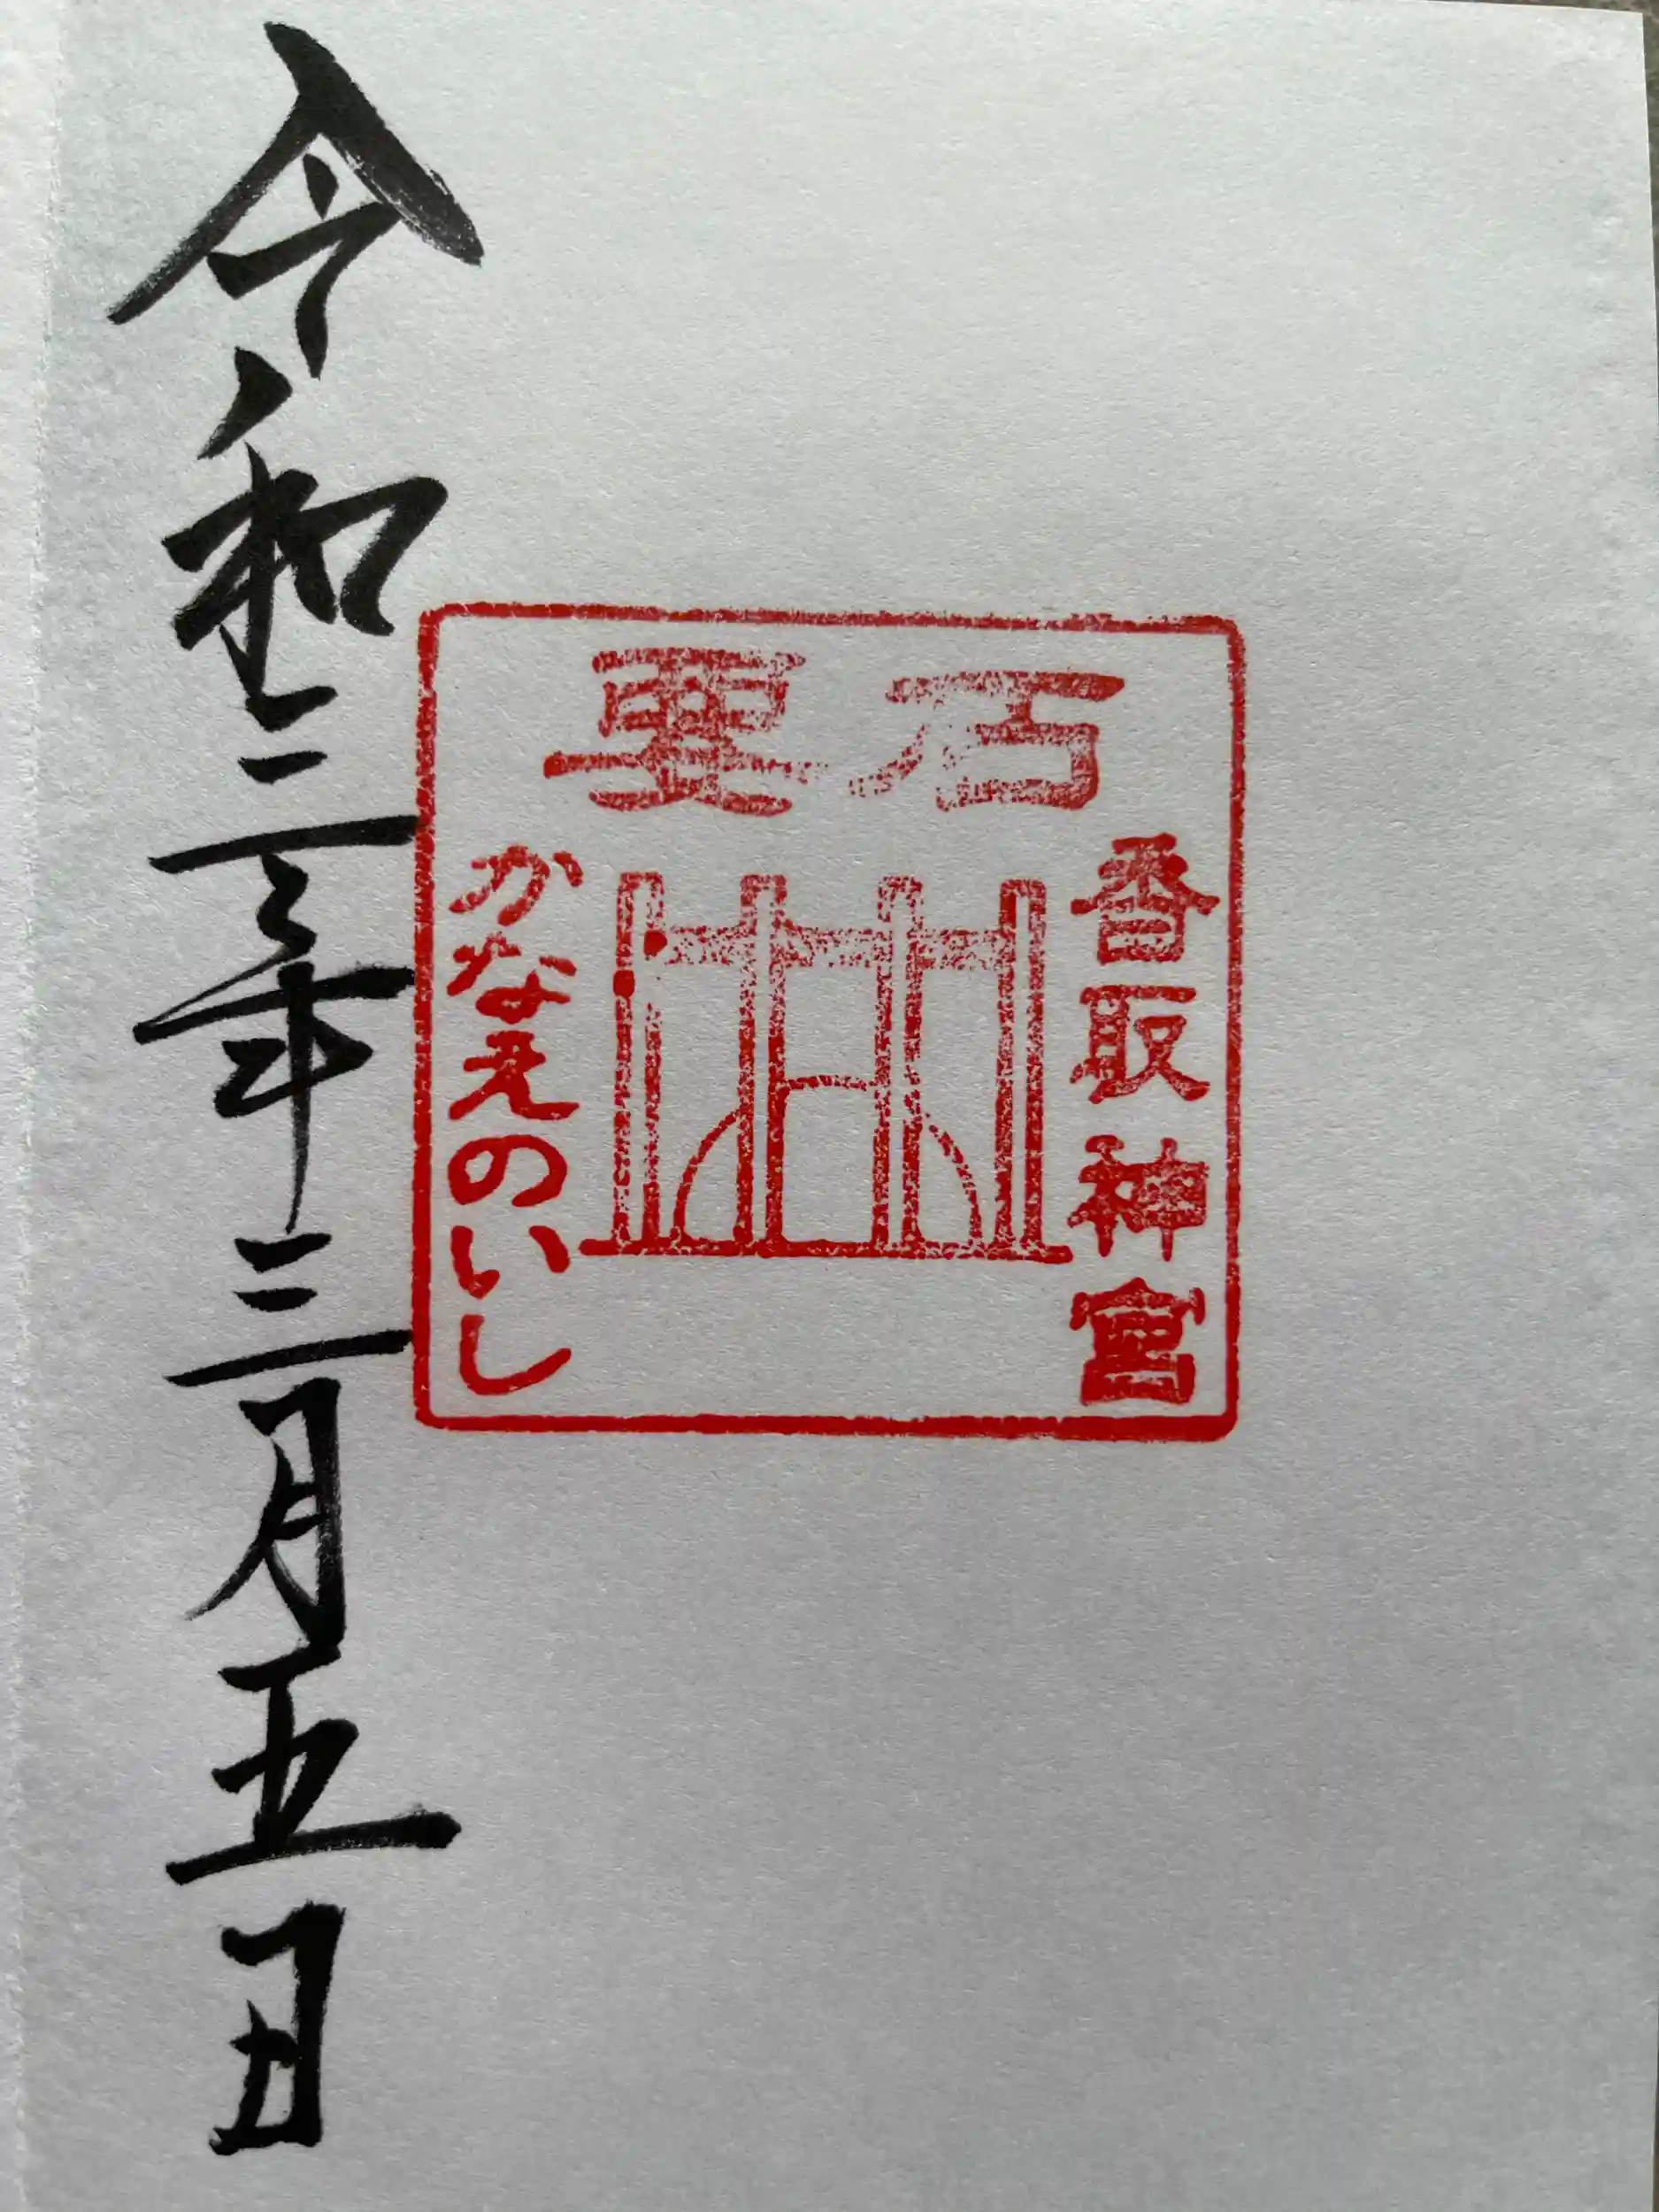 要石
香取神宮
かなえのいし
令和三年三月五日